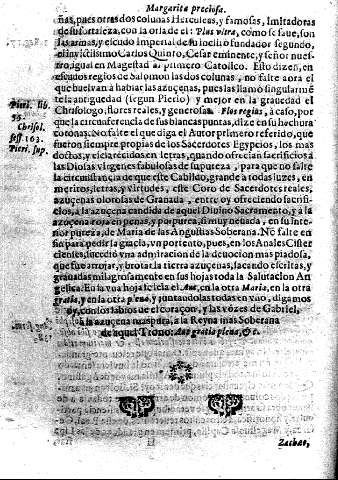 Margarita preciosa.
ñas, pues otros dos colunas Herculeas, y famosas, Imitadoras
de su fortaleza, con la orla de el: Plus vltra, como se fuue, son
las armas, y escudo Imperial de su inclito fundador segundo,
el invictissimo Carlos Quinto, Cesar eminente, y señor nues-
tro, igual en Magestad al primero Catolico. Esto dizen, en
escudos regios de Salomon las dos colunas, no falte aora el
que buelvan à habitar las azuçenas, pues las llamó singularmẽ
te la antiguedad (segun Pierio) y mejor en la grauedad el
Chrisologo, flores reales, y generosas. Flos regius, à caso, por
que la circunferencia de sus blancas puntas, dize en su hechura
coronas. No falte el que diga el Autor primero referido, que
fueron siempre propias de los Sacerdotes Egypcios, los mas
doctos, y esclarecidos en letras, quando ofrecian sacrificios à
las Diosas virgenes fabulosas de su pureza, para que no falte
la circunstancia de que este Cabildo, grande à todas luzes, en
meritos, letras, y virtudes, este Coro de Sacerdotes reales,
azuçenas olorosas de Granada, entre oy ofreciendo sacrifi-
cios, à la azuçena candida de aquel Diuino Sacramento, y à la
açuçena roxa en penas, y purpurea, si muy neuada, en su inte-
rior pureza, de Maria de las Angustias Soberana. No falte en
fin para pedir la gracia, vn portento, pues, en los Anales Cister-
cienses, sucediò vna admiracion de la deuocion mas piadosa,
que fue arrojar, y brotar la tierra azuçenas, sacando escritas, y
grauadas milagrosamente en sus hojas toda la Salutacion An-
gelica. En la vna hoja se leìa el Aue, en la otra Maria, en la otra
gratia, y en la otra plena, y juntandolas todas en vno, digamos
oy, con los labios de el coraçon, y las vozes de Gabriel,
à la azuçena mas pura, à la Reyna mas Soberana
de aquel Trono: Aue gratia plena, &c.
Pieri. lib.
55.
Chrisol.
ser. 163.
Pieri. sup.
Zachæe,